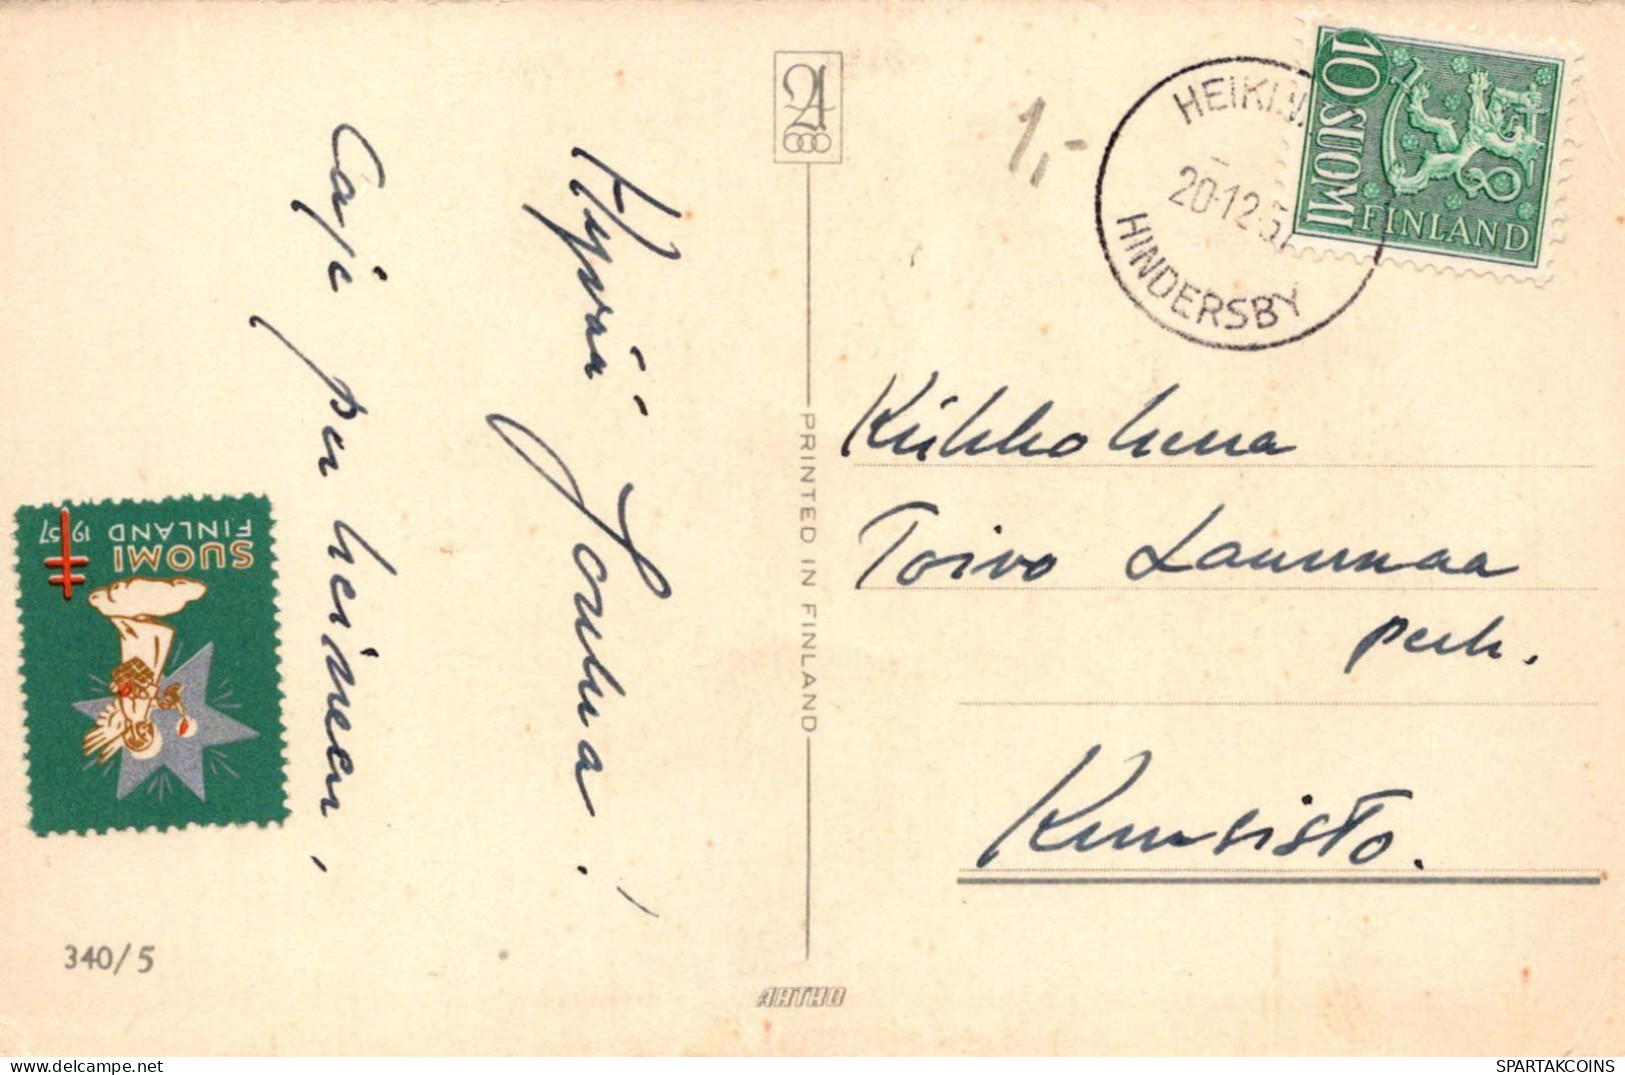 Hyvää
Joulua!
Caji per heineen,
SUOMI
FINLAND 1957
340/5
PRINTED IN FINLAND
ARTKO
1,-
HEIKI
20.12.57
HINDERSBY
10 SUOMI
FINLAND
Toivo Laurmaa
perh.
Kuusisto.
SPARTAKCOINS